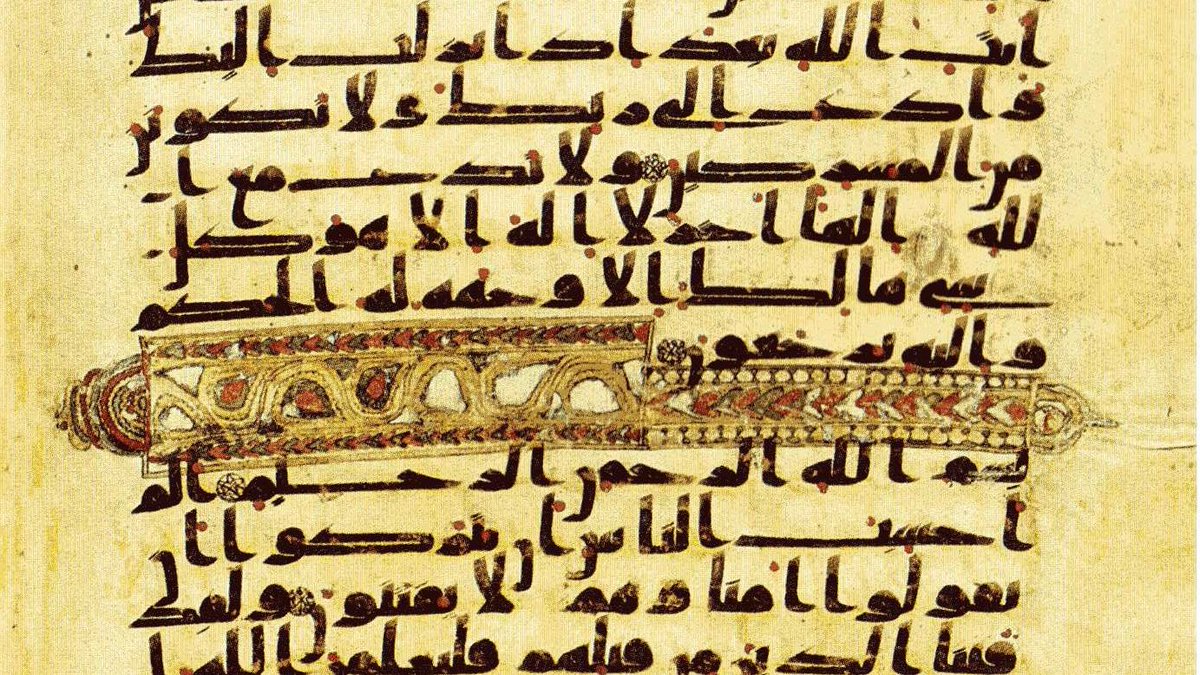 ايت الله بعد اذ انزلت اليك
وادع الى ربك ولا تكونن
من المشركين ولا تدع مع ا
لله الها اخر لا اله الا هو كل
شي هالك الا وجهه له الحكم
واليه ترجعون
بسم الله الرحمن الرحيم الم
احسب الناس ان يتركوا ان
يقولوا امنا وهم لا يفتنون ولقد
فتنا الذين من قبلهم فليعلمن الله ا